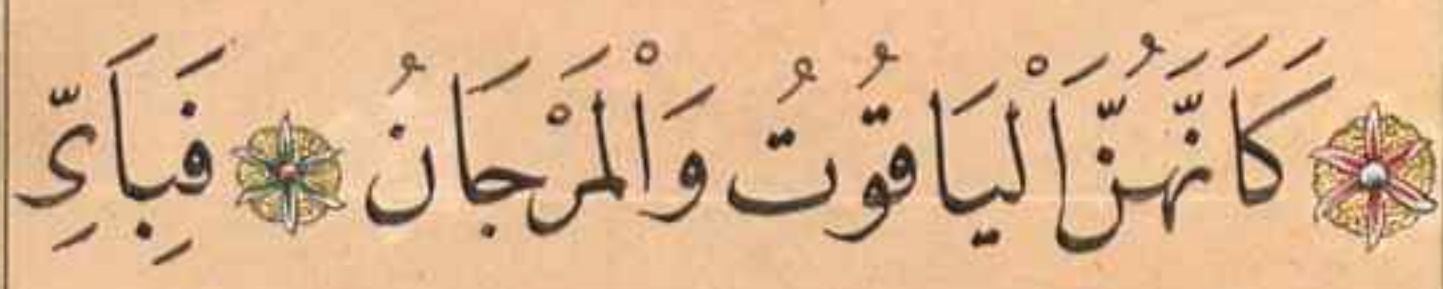 كَاَنَّهُنَّ الْيَاقُوتُ وَالْمَرْجَانُ فَبِاَيِّ